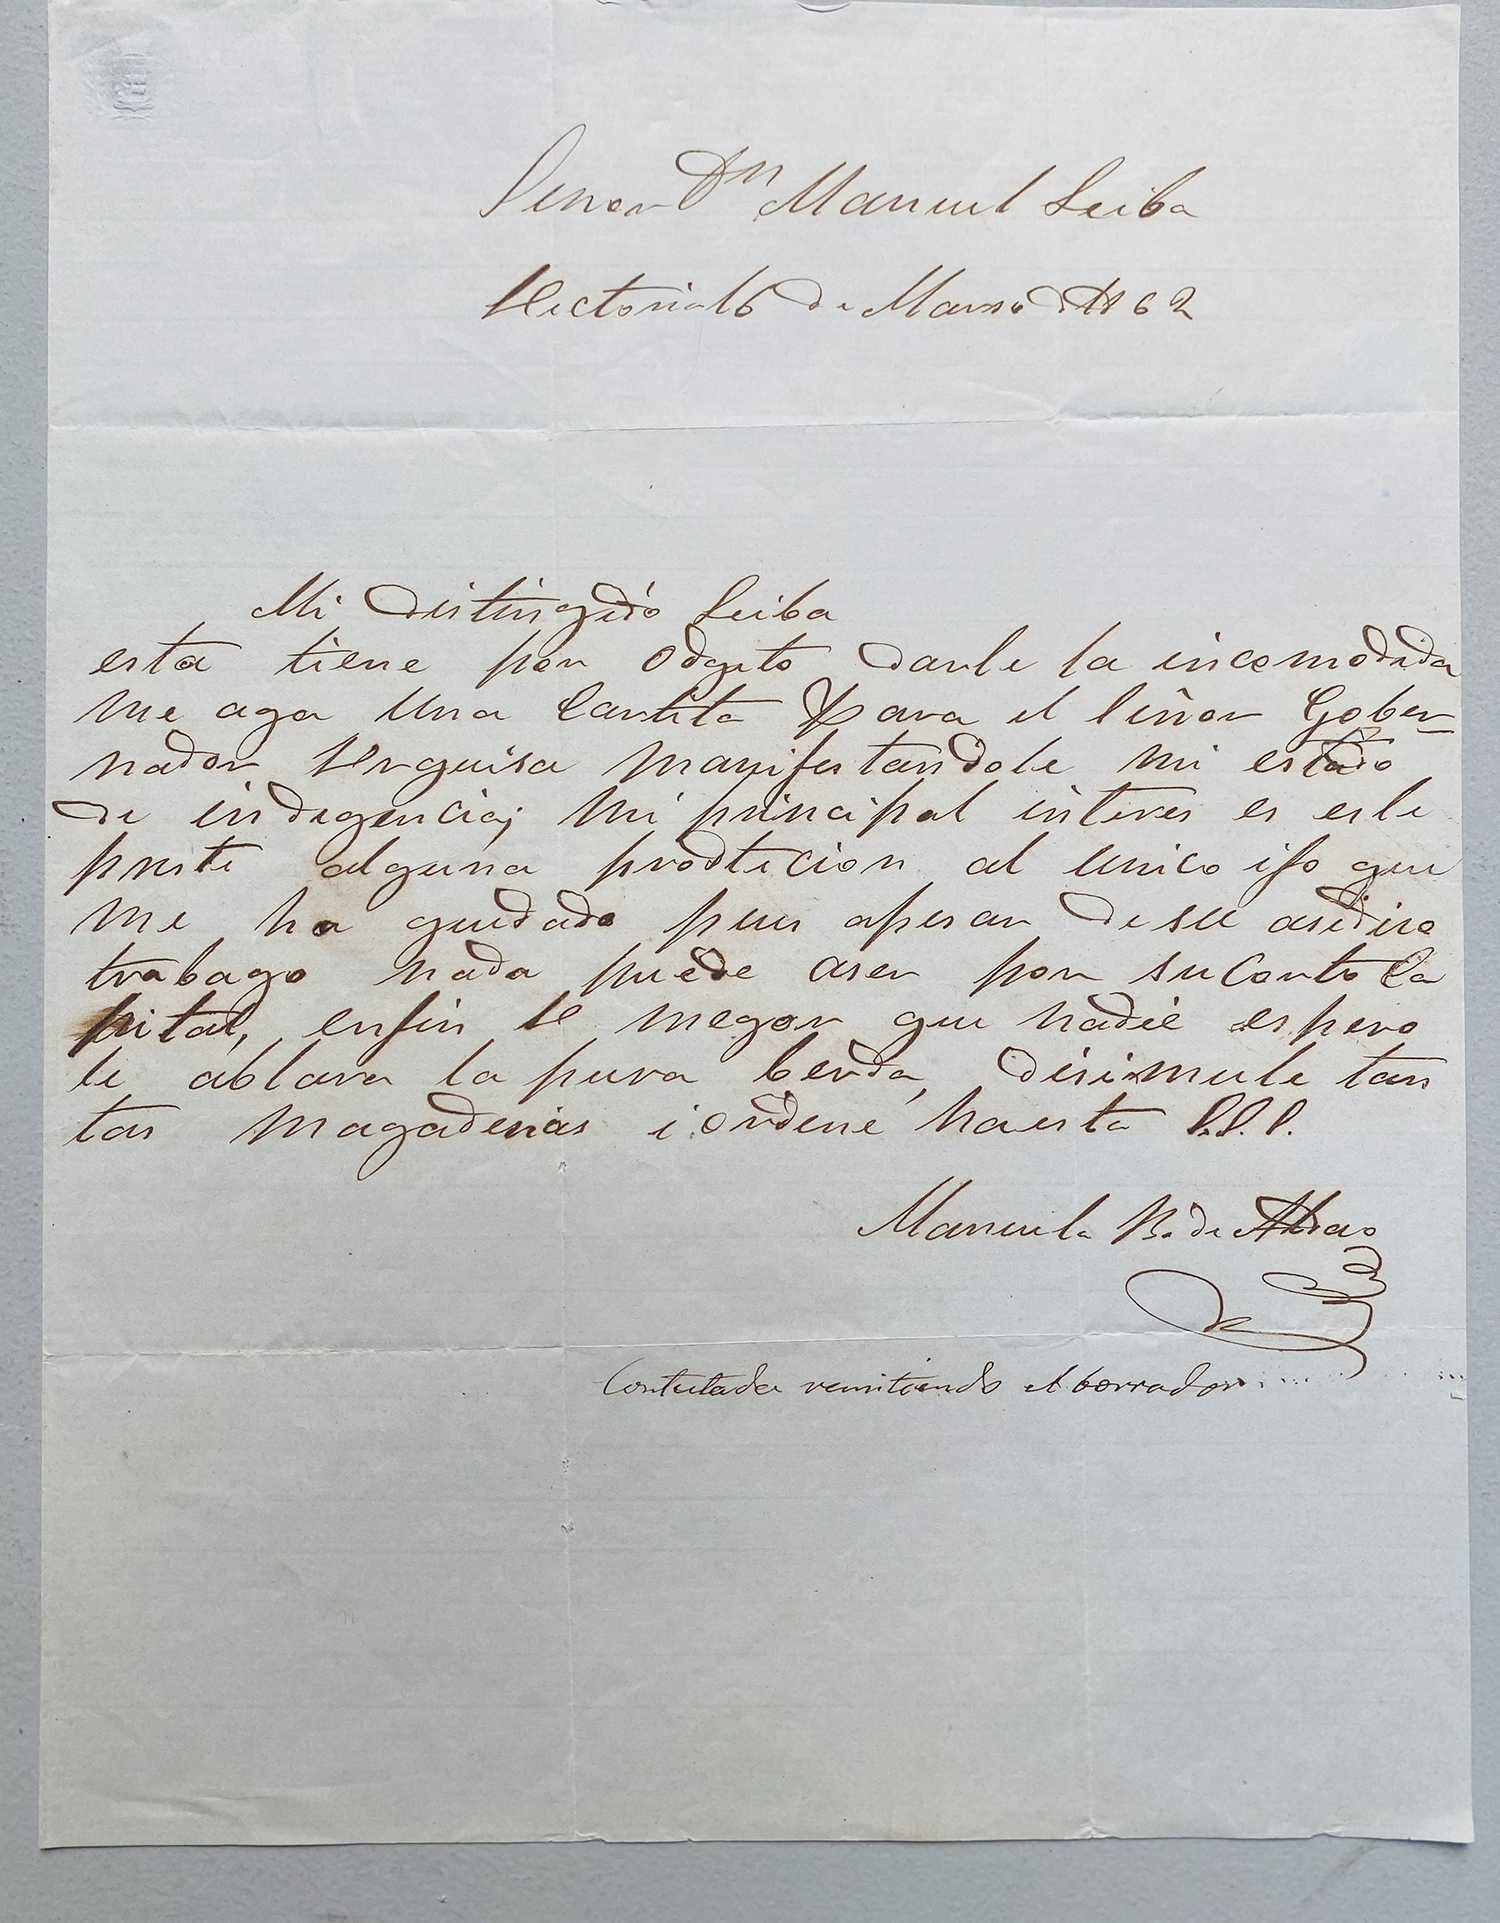 Señor Dn Manuel Leiba
Victoria 16 de Marso d 1862
Mi distingido Leiba
esta tiene por odgeto darle la incomodida
me aga una Cartita para el Señor Gober-
nador Urguisa manifestandole mi estado
de indegencia; mi principal interes es este
preste alguna prodtecion al unico ijo que
me ha quedado pues apesar de su asediro
trabago nada puede aser por su corto Ca
pital, enfin U megor que nadie espero
le ablara la pura berda, disimule tan
tas magaderias i ordene haesta S.S.S.
Manuela B. de
Contestada remitiendo el borrador